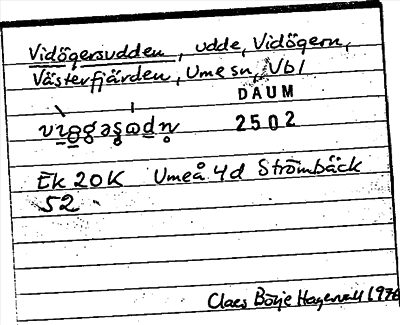 Vidögersudden, udde, Vidögern,
Västerfjärden, Umesn, Vbl
DAUM
2502
Ek 20K Umeå 4d Strömbäck
52
Claes Börje Hagervall 1976